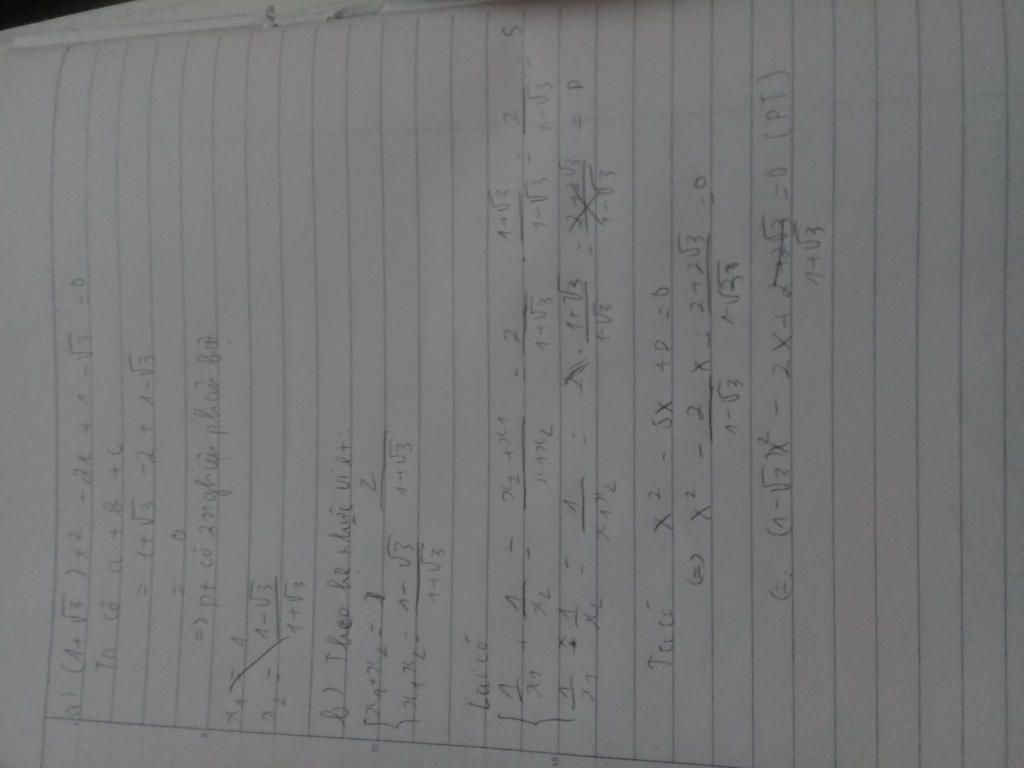 a) (1+√3)x² - 2x + 1 - √3 = 0
Ta có a + b + c
= 1+√3 - 2 + 1-√3
= 0
=> pt có 2 nghiệm phân biệt
x1 = 1
x2 = (1-√3)/(1+√3)
b) Theo hệ thức viet:
{ x1+x2 = 2/(1+√3)
x1x2 = (1-√3)/(1+√3)
Lại có
{ 1/x1 + 1/x2 = (x2+x1)/(x1x2) = 2/(1+√3) . (1+√3)/(1-√3) = 2/(1-√3) = S
1/x1 . 1/x2 = 1/(x1x2) = (1+√3)/(1-√3) = P
Ta có X² - SX + P = 0
(=) X² - 2/(1-√3) X + (2+2√3)/(1-√3) = 0
(=) (1-√3)X² - 2X + 1+√3 = 0 (PT)